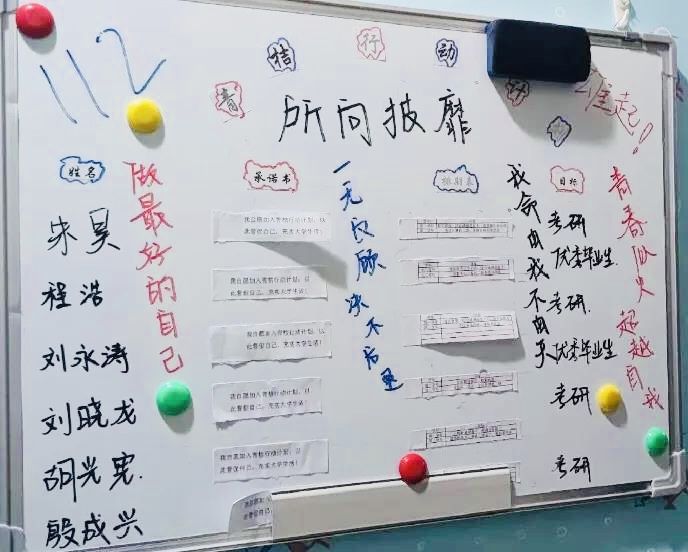 112
青桔行动
起!!
所向披靡
姓名
做最好的自己
承诺书
一无反顾决不后退
我命由我不由天
目标
青春似火 超越自我
朱昊
我自愿加入青桔行动计划，以
此督促自己，充实大学生活！
考研
优秀毕业生.
程浩
我自愿加入青桔行动计划，以
此督促自己，充实大学生活！
考研.
刘永涛
我自愿加入青桔行动计划，以
此督促自己，充实大学生活！
优秀毕业生
刘晓龙
我自愿加入青桔行动计划，以
此督促自己，充实大学生活！
考研
胡光宪.
我自愿加入青桔行动计划，以
此督促自己，充实大学生活！
考研
殷成兴